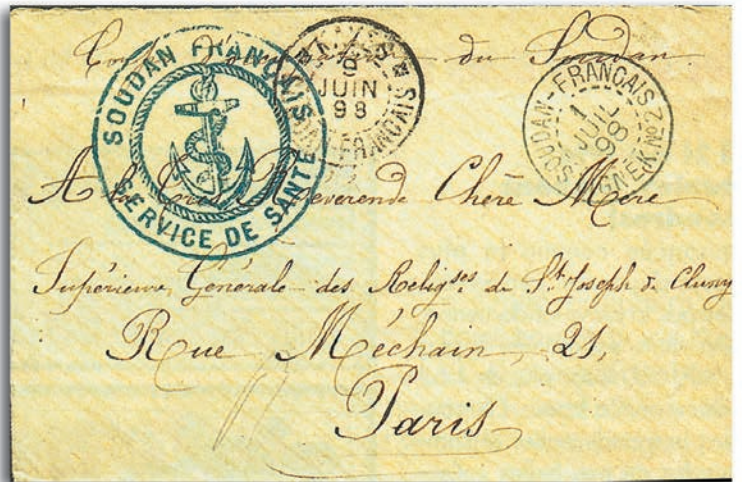 Corps d'occupation du Soudan
SOUDAN FRANÇAIS
SERVICE DE SANTÉ
KAYES
9
JUIN
98
SOUDAN-FRANÇAIS
1
JUIL
98
LIGNE K. Nº2
A la Très Révérende Chère Mère
Supérieure Générale des Religses de St Joseph de Cluny
Rue Méchain, 21,
Paris